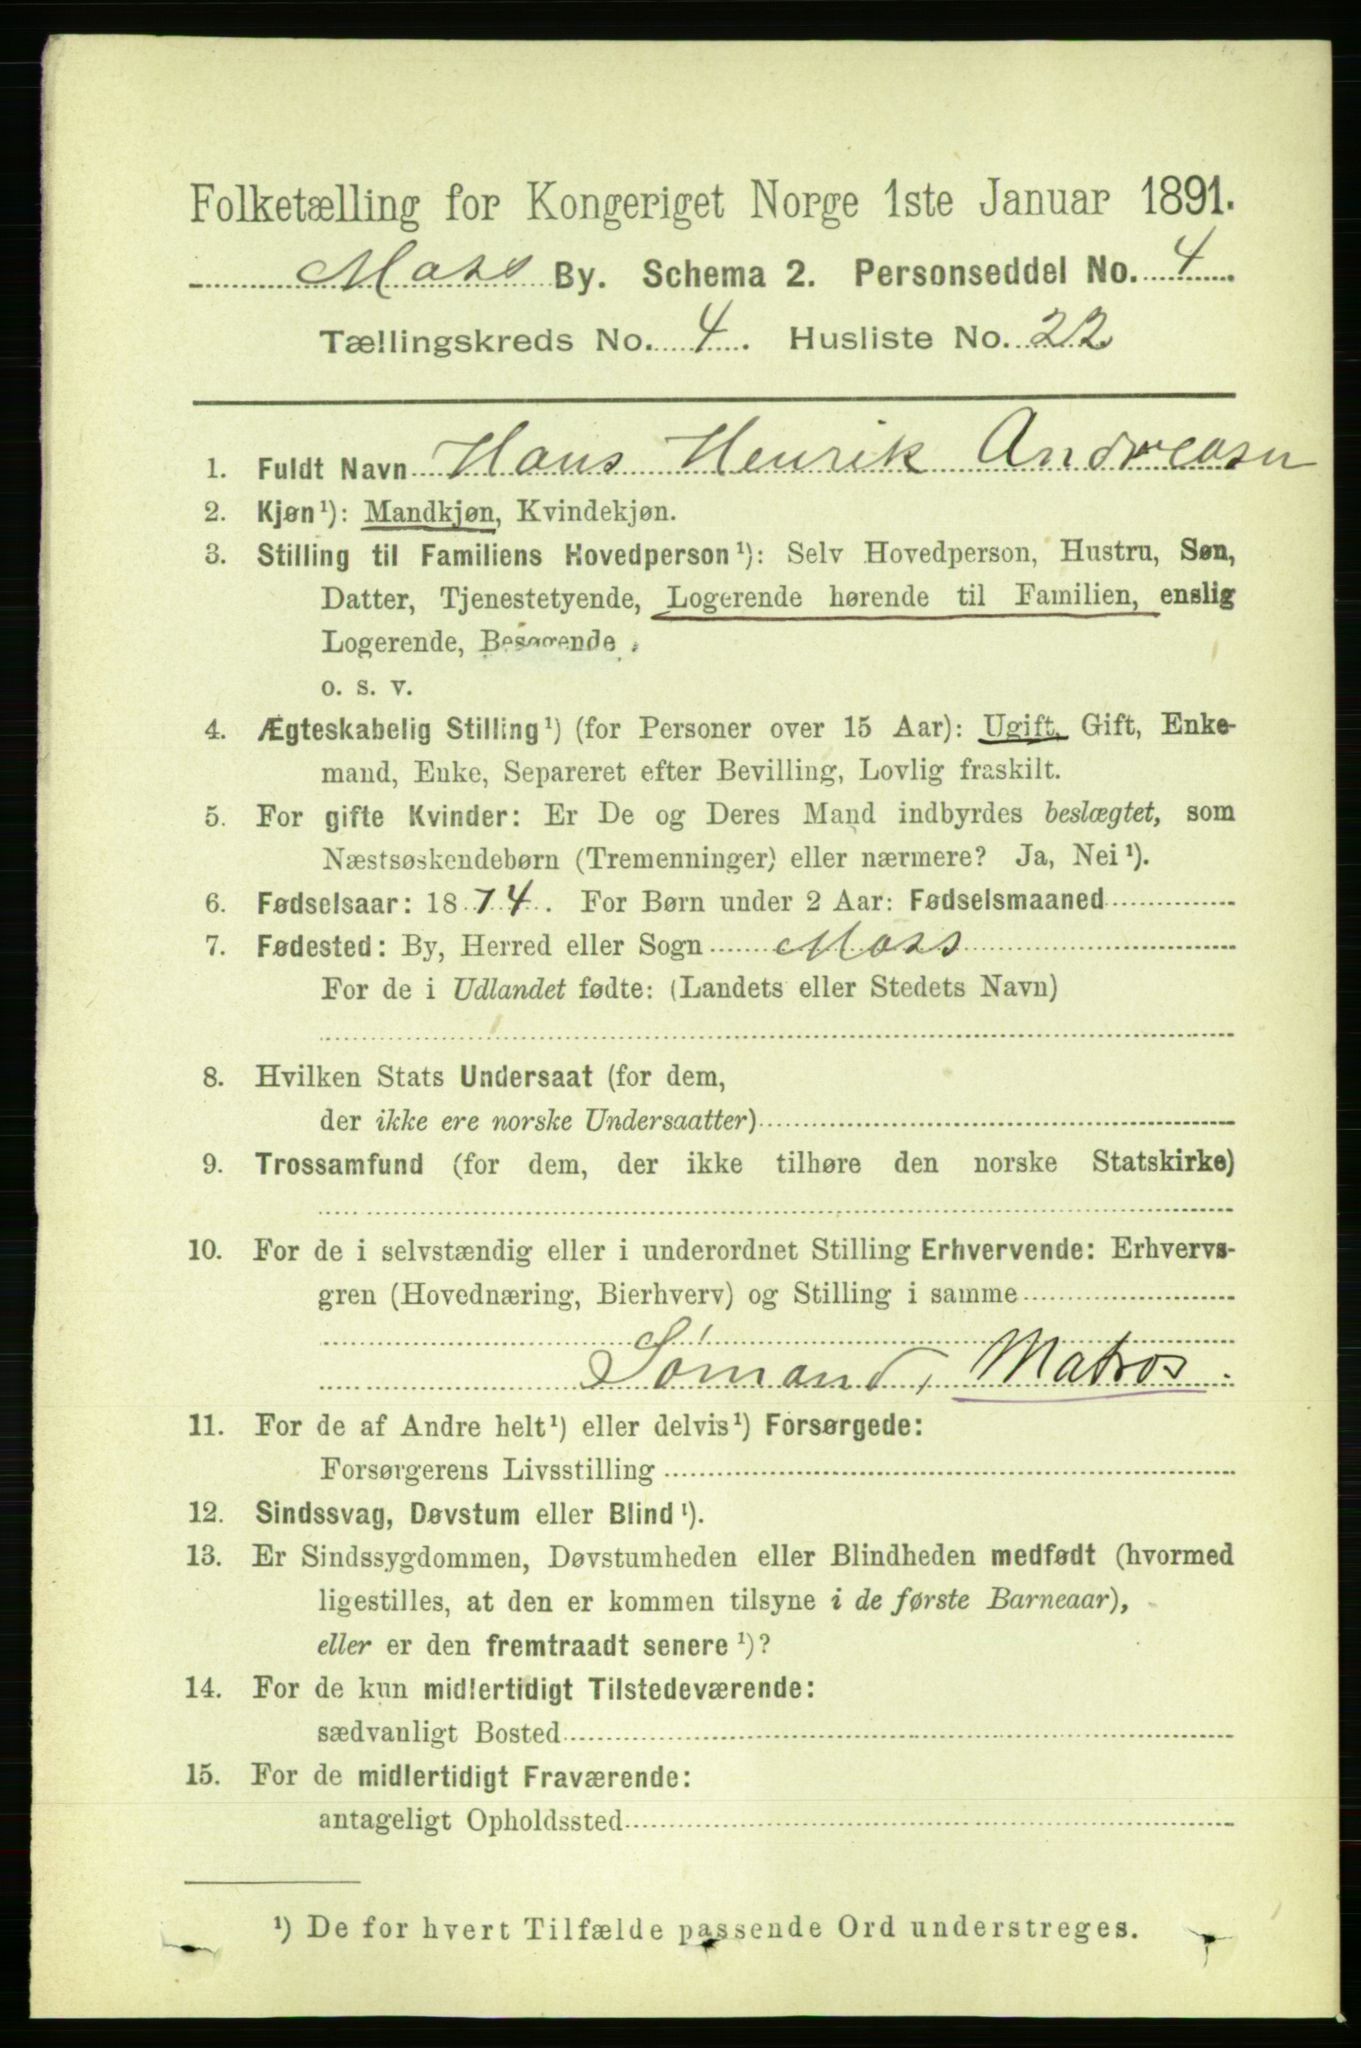 Folketælling for Kongeriget Norge 1ste Januar 1891.
Moss By. Schema 2. Personseddel No. 4
Tællingskreds No. 4. Husliste No. 22
1. Fuldt Navn Hans Henrik Andreasn
2. Kjøn¹): Mandkjøn, Kvindekjøn.
3. Stilling til Familiens Hovedperson¹): Selv Hovedperson, Hustru, Søn,
Datter, Tjenestetyende, Logerende hørende til Familien, enslig
Logerende, Besøgende
o. s. v.
4. Ægteskabelig Stilling¹) (for Personer over 15 Aar): Ugift, Gift, Enke-
mand, Enke, Separeret efter Bevilling, Lovlig fraskilt.
5. For gifte Kvinder: Er De og Deres Mand indbyrdes beslægtet, som
Næstsøskendebørn (Tremenninger) eller nærmere? Ja, Nei¹).
6. Fødselsaar: 1874. For Børn under 2 Aar: Fødselsmaaned
7. Fødested: By, Herred eller Sogn Moss
For de i Udlandet fødte: (Landets eller Stedets Navn)
8. Hvilken Stats Undersaat (for dem,
der ikke ere norske Undersaatter)
9. Trossamfund (for dem, der ikke tilhøre den norske Statskirke)
10. For de i selvstændig eller i underordnet Stilling Erhvervende: Erhvervs-
gren (Hovednæring, Bierhverv) og Stilling i samme
Sømand, Matros.
11. For de af Andre helt¹) eller delvis¹) Forsørgede:
Forsørgerens Livsstilling
12. Sindssvag, Døvstum eller Blind¹).
13. Er Sindssygdommen, Døvstumheden eller Blindheden medfødt (hvormed
ligestilles, at den er kommen tilsyne i de første Barneaar),
eller er den fremtraadt senere¹)?
14. For de kun midlertidigt Tilstedeværende:
sædvanligt Bosted
15. For de midlertidigt Fraværende:
antageligt Opholdssted
¹) De for hvert Tilfælde passende Ord understreges.